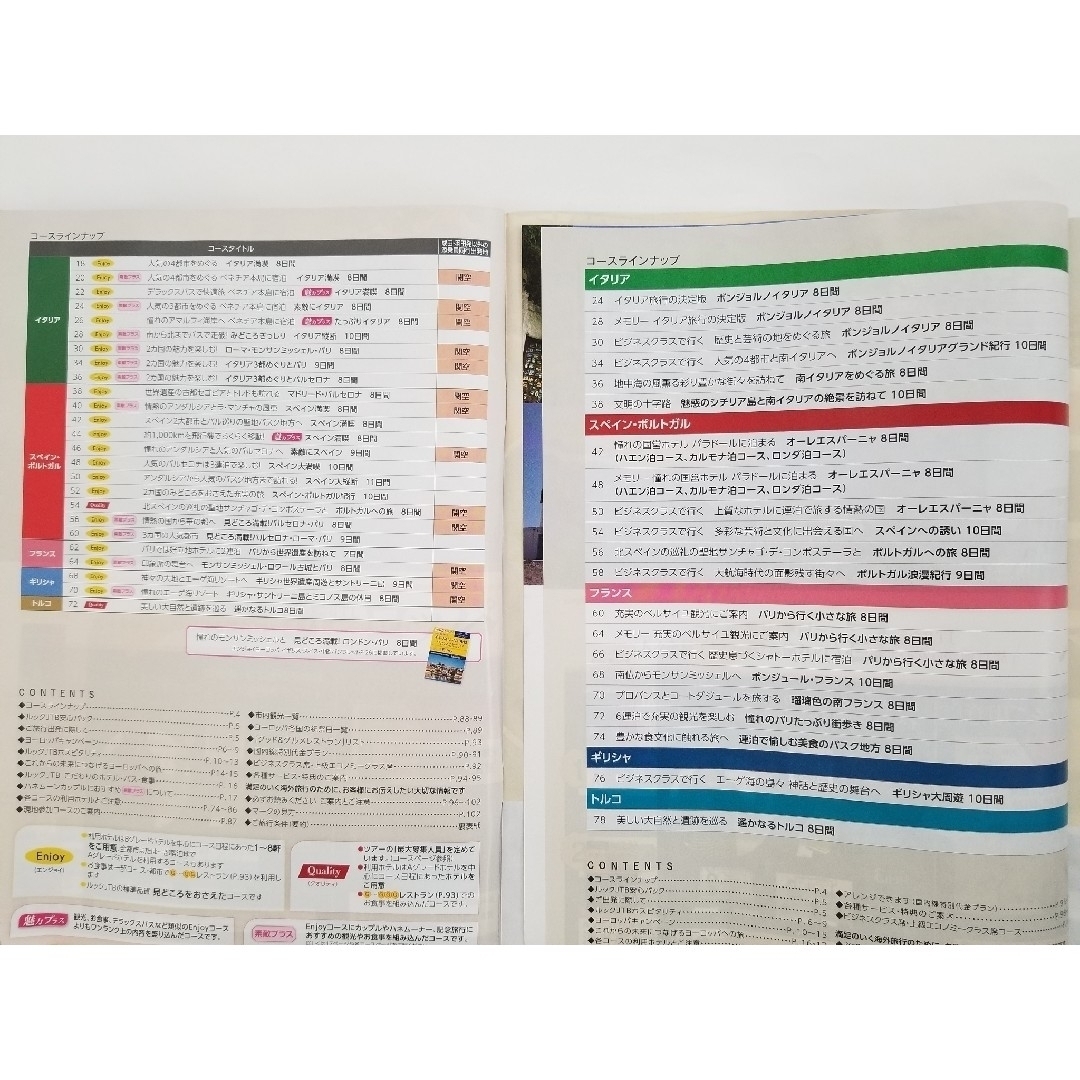 コースラインナップ
コースタイトル
イタリア
18 Enjoy 人気の4都市をめぐる イタリア満喫 8日間
20 Enjoy 素敵プラス 人気の4都市をめぐる ベネチア本島に宿泊 イタリア満喫 8日間 関空
22 Enjoy デラックスバスで快適旅 ベネチア本島に宿泊 魅力プラス イタリア満喫 8日間
24 Enjoy 素敵プラス 人気の3都市をめぐる ベネチア本島に宿泊 素敵にイタリア 8日間 関空
26 Enjoy 憧れのアマルフィ海岸へ ベネチア本島に宿泊 魅力プラス たっぷりイタリア 8日間 関空
28 Enjoy 素敵プラス 南から北までバスで走破! みどころぎっしり イタリア縦断 10日間
30 Enjoy 素敵プラス 2カ国の魅力を楽しむ! ローマ・モンサンミッシェル・パリ 8日間 関空
34 Enjoy 素敵プラス 2カ国の魅力を楽しむ! イタリア3都めぐりとパリ 9日間 関空
36 Enjoy 素敵プラス 2カ国の魅力を楽しむ! イタリア3都めぐりとバルセロナ 8日間
スペイン・ポルトガル
38 Enjoy 世界遺産の古都セゴビアとトレドも訪れる マドリード・バルセロナ 8日間 関空
40 Enjoy 素敵プラス 情熱のアンダルシアとラ・マンチャの風車 スペイン満喫 8日間 関空
42 Enjoy スペイン2大都市とバル巡りの聖地バスク地方へ スペイン満喫 8日間
44 Enjoy 素敵プラス 約1,000kmを飛行機でらくらく移動! 魅力プラス スペイン満喫 8日間
46 Enjoy 憧れのアンダルシアと人気のバルセロナへ 素敵にスペイン 9日間 関空
48 Enjoy 人気のバルセロナは3連泊で楽しむ! スペイン大満喫 10日間
50 Enjoy アンダルシアから人気のバスク地方まで訪れる! スペイン大縦断 11日間
52 Enjoy 2カ国のみどころをおさえた充実の旅 スペイン・ポルトガル紀行 10日間
54 Quality 北スペインの巡礼の聖地サンチャゴ・デ・コンポステーラと ポルトガルへの旅 8日間 関空
56 Enjoy 素敵プラス 情熱の国から華の都へ 見どころ満載!バルセロナ・パリ 8日間 関空
60 Enjoy 素敵プラス 3カ国の人気都市 見どころ満載!バルセロナ・ローマ・パリ 9日間
フランス
62 Enjoy パリでは好立地ホテルに2連泊 パリから世界遺産を訪ねて 7日間
64 Enjoy 素敵プラス 印象派の舞台へ モンサンミッシェル・ロワール古城とパリ 8日間 関空
ギリシャ
68 Enjoy 神々の大地とエーゲ海リゾートへ ギリシャ世界遺産周遊とサントリーニ島 9日間 関空
70 Enjoy 素敵プラス 憧れのエーゲ海リゾート ギリシャ・サントリーニ島とミコノス島の休日 8日間 関空
トルコ
72 Quality 美しい大自然と遺跡を巡る 遥かなるトルコ8日間
憧れのモンサンミッシェルと 見どころ満載!ロンドン・パリ 8日間
CONTENTS
◆コースラインナップ P.4
◆ルックJTB安心パック P.5
◆ご旅行出発に際して P.5
◆ヨーロッパキャンペーン P.6~9
◆ルックJTBホスピタリティ P.10~13
◆これからの未来につなげるヨーロッパへの旅 P.14~15
◆ルックJTB こだわりのホテル・バス・食事 P.16
◆ハネムーンカップルにおすすめ 素敵プラス P.17
◆各コースの利用ホテルとご注意 P.74~86
◆現地参加コースのご案内 P.87
◆市内観光一覧 P.88~89
◆ヨーロッパ各国の祝祭日一覧 P.89
◆国内線特別代金プラン P.92
◆各種サービス・特典のご案内 P.94~95
満足のいく海外旅行のために、お客様にお伝えしたい大切な情報です
◆必ずお読みください ご案内とご注意 P.96~102
◆マークの見方 P.107
◆ご旅行条件(要約) 裏表紙
Enjoy
(エンジョイ)
●ルックJTBの標準元祖 見どころをおさえたコースです
Quality
(クオリティ)
●ツアーの「最大募集人員」を定めて
います。(コースページ参照)
●利用ホテルはAグレードホテルを中
心にコース日程にあったホテルを
ご用意
レストラン(P.93)での
お食事を組み込んだコースです。
魅力プラス
観光、お食事、デラックスバスなど類似のEnjoyコース
よりもワンランク上の内容を盛り込んだコースです。
素敵プラス
Enjoyコースにカップルやハネムーナー、記念旅行に
おすすめの観光やお食事を組み込んだコースです。
コースラインナップ
イタリア
24 イタリア旅行の決定版 ボンジョルノイタリア 8日間
28 メモリー イタリア旅行の決定版 ボンジョルノイタリア 8日間
30 ビジネスクラスで行く 歴史と芸術の地をめぐる旅 ボンジョルノイタリア 8日間
34 ビジネスクラスで行く 人気の4都市と南イタリアへ ボンジョルノイタリアグランド紀行 10日間
36 地中海の風薫る彩り豊かな街々を訪ねて 南イタリアをめぐる旅 8日間
38 文明の十字路 魅惑のシチリア島と南イタリアの絶景を訪ねて 10日間
スペイン・ポルトガル
42 憧れの国営ホテル パラドールに泊まる オーレエスパーニャ 8日間
(ハエン泊コース、カルモナ泊コース、ロンダ泊コース)
48 メモリー 憧れの国営ホテル パラドールに泊まる オーレエスパーニャ 8日間
(ハエン泊コース、カルモナ泊コース、ロンダ泊コース)
50 ビジネスクラスで行く 上質なホテルに連泊で旅する情熱の国 オーレエスパーニャ 8日間
54 ビジネスクラスで行く 多彩な芸術と文化に出会える国へ スペインへの誘い 10日間
56 北スペインの巡礼の聖地サンチャゴ・デ・コンポステーラと ポルトガルへの旅 8日間
58 ビジネスクラスで行く 大航海時代の面影残す街々へ ポルトガル浪漫紀行 9日間
フランス
60 充実のベルサイユ観光にご案内 パリから行く小さな旅 8日間
64 メモリー 充実のベルサイユ観光にご案内 パリから行く小さな旅 8日間
66 ビジネスクラスで行く 歴史息づくシャトーホテルに宿泊 パリから行く小さな旅 8日間
68 南仏からモンサンミッシェルへ ボンジュール・フランス 10日間
70 プロバンスとコートダジュールを旅する 瑠璃色の南フランス 8日間
72 6連泊で充実の観光を楽しむ 憧れのパリたっぷり街歩き 8日間
74 豊かな食文化に触れる旅へ 連泊で愉しむ美食のバスク地方 8日間
ギリシャ
76 ビジネスクラスで行く エーゲ海の島々 神話と歴史の舞台へ ギリシャ大周遊 10日間
トルコ
78 美しい大自然と遺跡を巡る 遥かなるトルコ 8日間
CONTENTS
◆コースラインナップ P.4
◆ルックJTB安心パック P.5
◆ご出発に際して P.5
◆ルックJTBホスピタリティ P.6~9
◆ヨーロッパキャンペーン P.10~15
◆これからの未来につなげるヨーロッパへの旅
◆各コースの利用ホテルとご注意
◆アレンジできます!(国内線特別代金プラン)
◆各種サービス・特典のご案内
◆ビジネスクラス席・上級エコノミークラス席コース